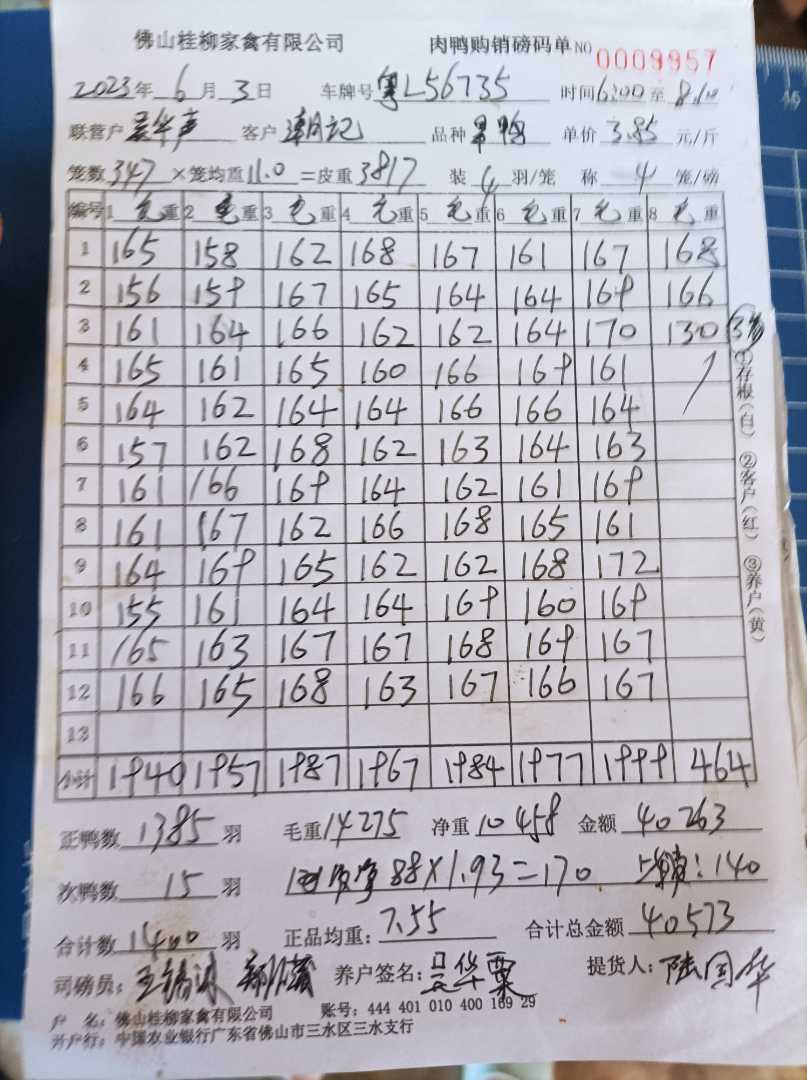 佛山桂柳家禽有限公司 肉鸭购销磅码单 NO 0009957
2023年6月3日 车牌号 粤L56735 时间6:00至8:10
联营户 客户 潮记 品种 单价 3.85 元/斤
笼数 347 ×笼均重 11.0 =皮重 3817 装 4 羽/笼 称 4 笼/磅
编号 1 毛重 2 毛重 3 毛重 4 毛重 5 毛重 6 毛重 7 毛重 8 毛重
1 165 158 162 168 167 161 167 168
2 156 159 167 165 164 164 169 166
3 161 164 166 162 162 164 170 130
4 165 161 165 160 166 169 161
5 164 162 164 164 166 166 164
6 157 162 168 162 163 164 163
7 161 166 169 164 162 161 169
8 161 167 162 166 168 165 161
9 164 169 165 162 162 168 172
10 155 161 164 164 169 160 169
11 165 163 167 167 168 169 167
12 166 165 168 163 167 166 167
13
小计 1940 1957 1987 1967 1984 1977 1999 464
正鸭数 1385 羽 毛重 14275 净重 10458 金额 40263
次鸭数 15 羽 88×1.93=170 :140
合计数 1400 羽 正品均重: 7.55 合计总金额 40573
司磅员: 养户签名: 提货人: 陆国华
户 名: 佛山桂柳家禽有限公司 账号: 444 401 010 400 169 29
开户行: 中国农业银行广东省佛山市三水区三水支行
①存根(白) ②客户(红) ③养户(黄)